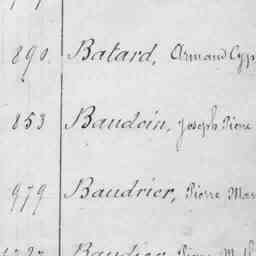 890. Batard, Armand Cyp
853 Baudoin, Joseph Pierre
979 Baudrier, Pierre Mar